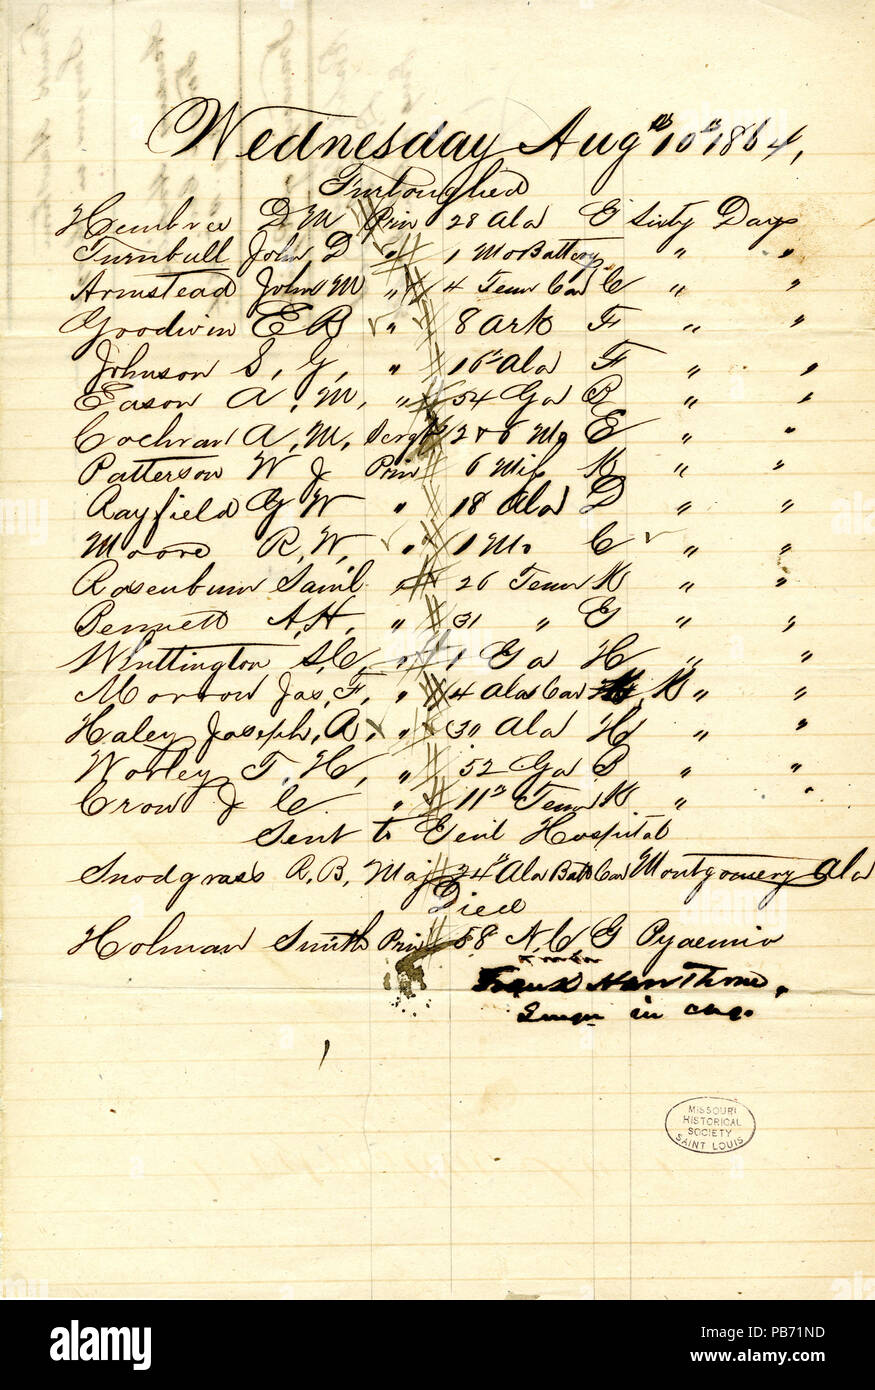 Wednesday Aug 10th 1864,
Furloughed
Hembree D M Priv 28 Ala E Sixty Days
Turnbull John D " 1 Mo Battery " "
Armstead John M " 4 Tenn Cav C " "
Goodwin E B " 8 Ark F " "
Johnson S, G, " 16" Ala F " "
Eason A, M, " 54 Ga B " "
Cochran A, M, Sergt 2 & 6 Mo E " "
Patterson W J Priv 6 Miss K " "
Rayfield G W " 18 Ala D " "
Moore R, W, " 1 Mo C " "
Rosenbum Saml " 26 Tenn K " "
Bennett A, H, " 31 " G " "
Whittington S, C, " 1 Ga H " "
Morrow Jas, F, " 4 Ala Cav K " "
Haley Joseph, A, " 30 Ala H " "
Worley T, H, " 52 Ga B " "
Crow J C " 11" Tenn K " "
Sent to Genl Hospital
Snodgrass R, B, Maj 24" Ala Batt Cav Montgomery Ala
Died
Holman Smith Priv 58" N, C G Pyaemia
Frank Hawthorne,
Surgn in chg.
MISSOURI
HISTORICAL
SOCIETY
SAINT LOUIS
alamy
Image ID: PB71ND
www.alamy.com